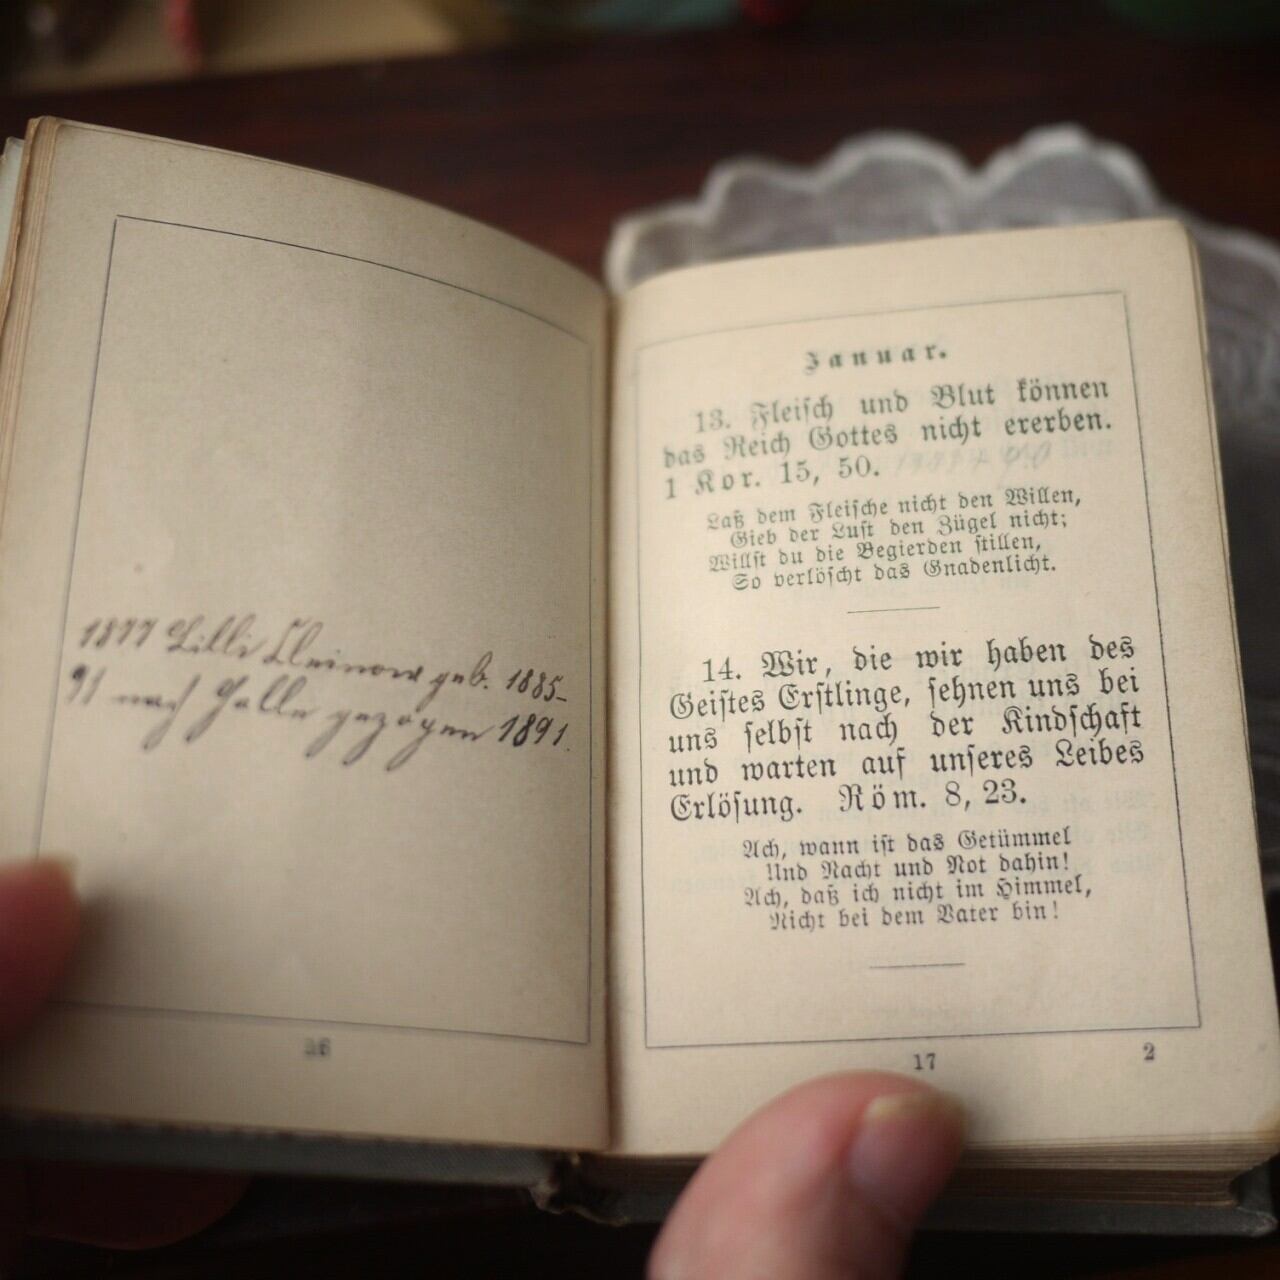 1877 Lilli Kleinow geb. 1885-
91 nach Halle gezogen 1891.
16
Januar.
13. Fleisch und Blut können
das Reich Gottes nicht ererben.
1 Kor. 15, 50.
Laß dem Fleische nicht den Willen,
Gieb der Lust den Zügel nicht;
Willst du die Begierden stillen,
So verlöscht das Gnadenlicht.
14. Wir, die wir haben des
Geistes Erstlinge, sehnen uns bei
uns selbst nach der Kindschaft
und warten auf unseres Leibes
Erlösung. Röm. 8, 23.
Ach, wann ist das Getümmel
Und Nacht und Not dahin!
Ach, daß ich nicht im Himmel,
Nicht bei dem Vater bin!
17 2